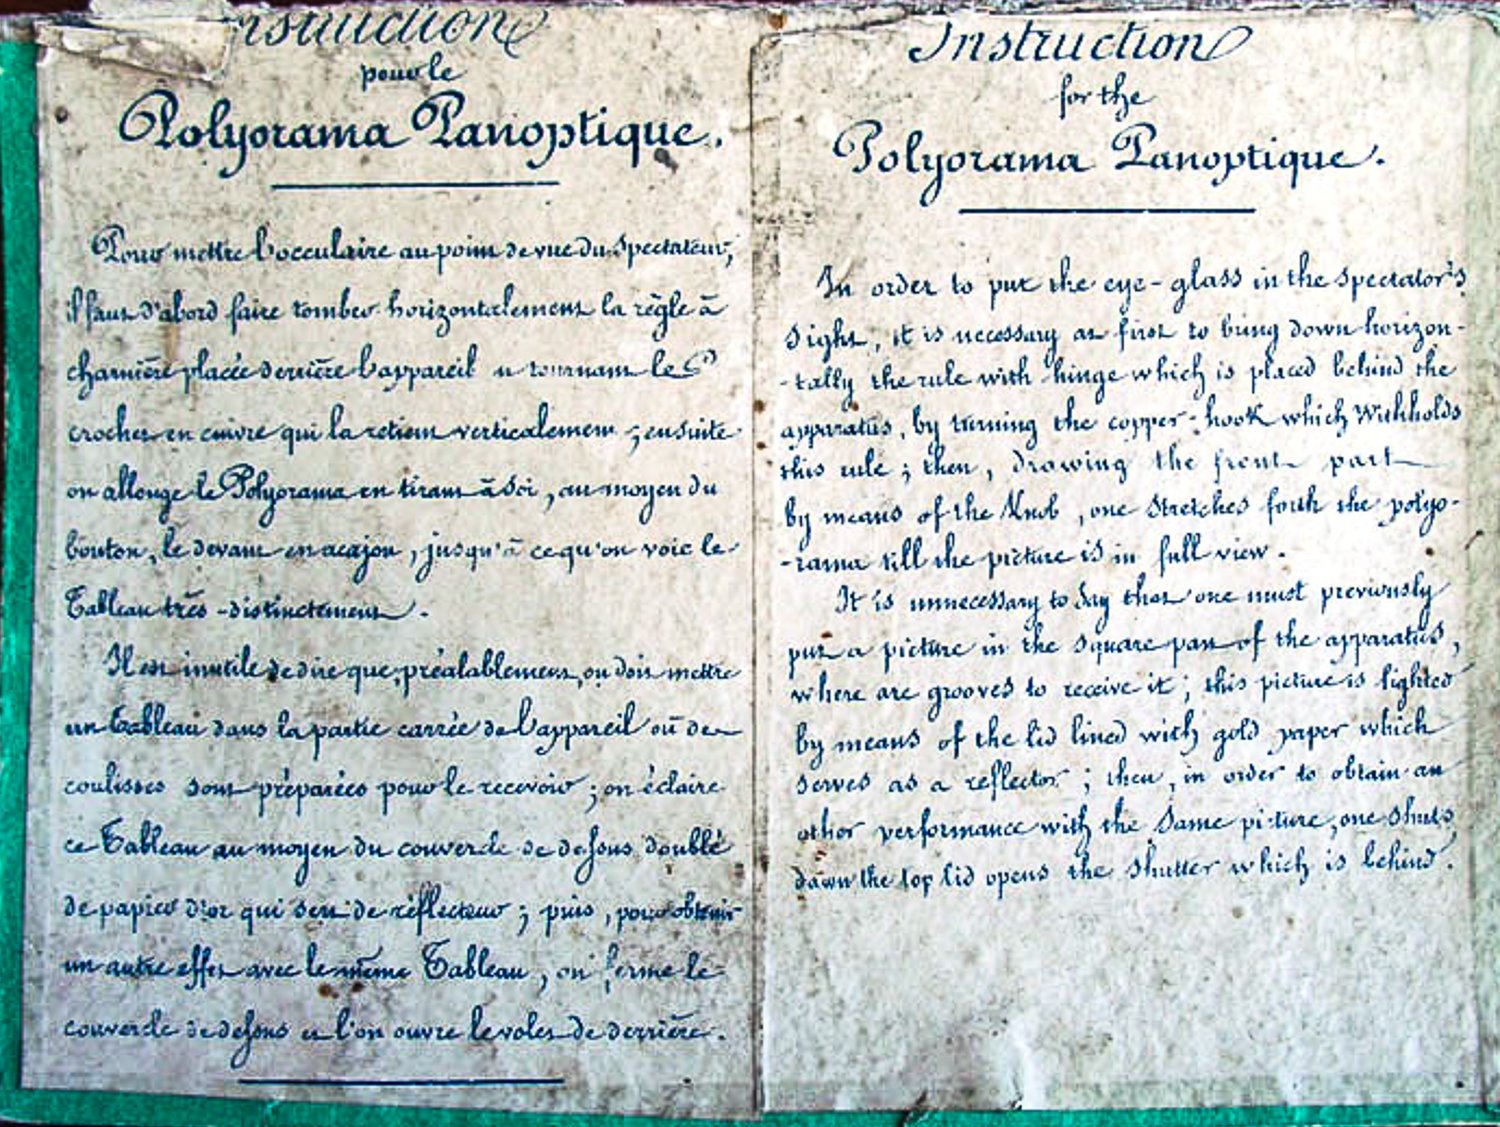 Instruction
pour le
Polyorama Panoptique.
Pour mettre l'occulaire au point de vue du Spectateur,
il faut d'abord faire tomber horizontalement la règle à
charnière placée derrière l'appareil en tournant le
crochet en cuivre qui la retient verticalement ; ensuite
on allonge le Polyorama en tirant à soi, au moyen du
bouton, le devant en acajou, jusqu'à ce qu'on voie le
Tableau très-distinctement.
Il est inutile de dire que, préalablement, on doit mettre
un Tableau dans la partie carrée de l'appareil où des
coulisses sont préparées pour le recevoir ; on éclaire
ce Tableau au moyen du couvercle de dessus doublé
de papier d'or qui sert de réflecteur ; puis, pour obtenir
un autre effet avec le même Tableau, on ferme le
couvercle de dessus et l'on ouvre le volet de derrière.
Instruction
for the
Polyorama Panoptique.
In order to put the eye-glass in the spectator's
sight, it is necessary at first to bring down horizon-
-tally the rule with hinge which is placed behind the
apparatus, by turning the copper-hook which Withholds
this rule ; then, drawing the front part
by means of the Knob, one stretches forth the polyo-
-rama till the picture is in full view.
It is unnecessary to say that one must previously
put a picture in the square part of the apparatus,
where are grooves to receive it ; this picture is lighted
by means of the lid lined with gold paper which
serves as a reflector ; then, in order to obtain an
other performance with the same picture, one shuts
down the top lid opens the shutter which is behind.